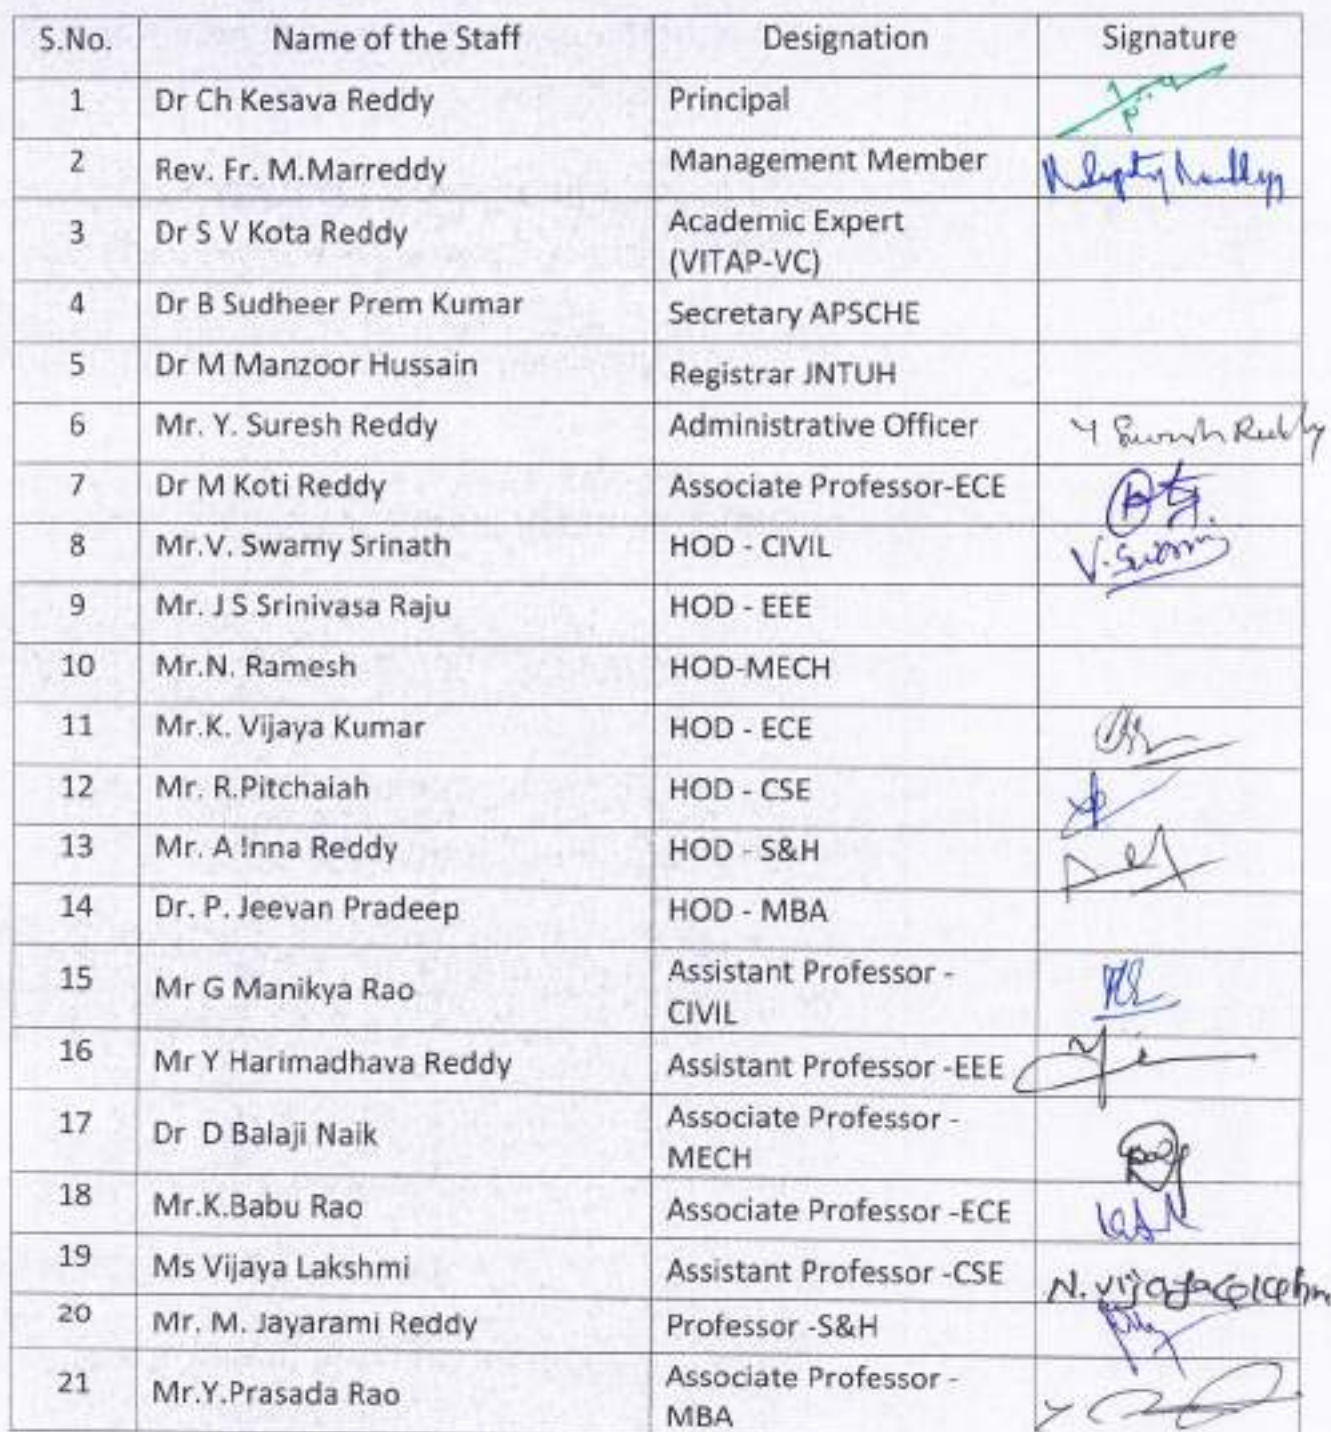 S.No. Name of the Staff Designation Signature
1 Dr Ch Kesava Reddy Principal
2 Rev. Fr. M.Marreddy Management Member
3 Dr S V Kota Reddy Academic Expert
(VITAP-VC)
4 Dr B Sudheer Prem Kumar Secretary APSCHE
5 Dr M Manzoor Hussain Registrar JNTUH
6 Mr. Y. Suresh Reddy Administrative Officer Y Suresh Reddy
7 Dr M Koti Reddy Associate Professor-ECE
8 Mr.V. Swamy Srinath HOD - CIVIL V. Swamy
9 Mr. J S Srinivasa Raju HOD - EEE
10 Mr.N. Ramesh HOD-MECH
11 Mr.K. Vijaya Kumar HOD - ECE
12 Mr. R.Pitchaiah HOD - CSE
13 Mr. A Inna Reddy HOD - S&H
14 Dr. P. Jeevan Pradeep HOD - MBA
15 Mr G Manikya Rao Assistant Professor -
CIVIL
16 Mr Y Harimadhava Reddy Assistant Professor -EEE
17 Dr D Balaji Naik Associate Professor -
MECH
18 Mr.K.Babu Rao Associate Professor -ECE
19 Ms Vijaya Lakshmi Assistant Professor -CSE
20 Mr. M. Jayarami Reddy Professor -S&H
21 Mr.Y.Prasada Rao Associate Professor -
MBA